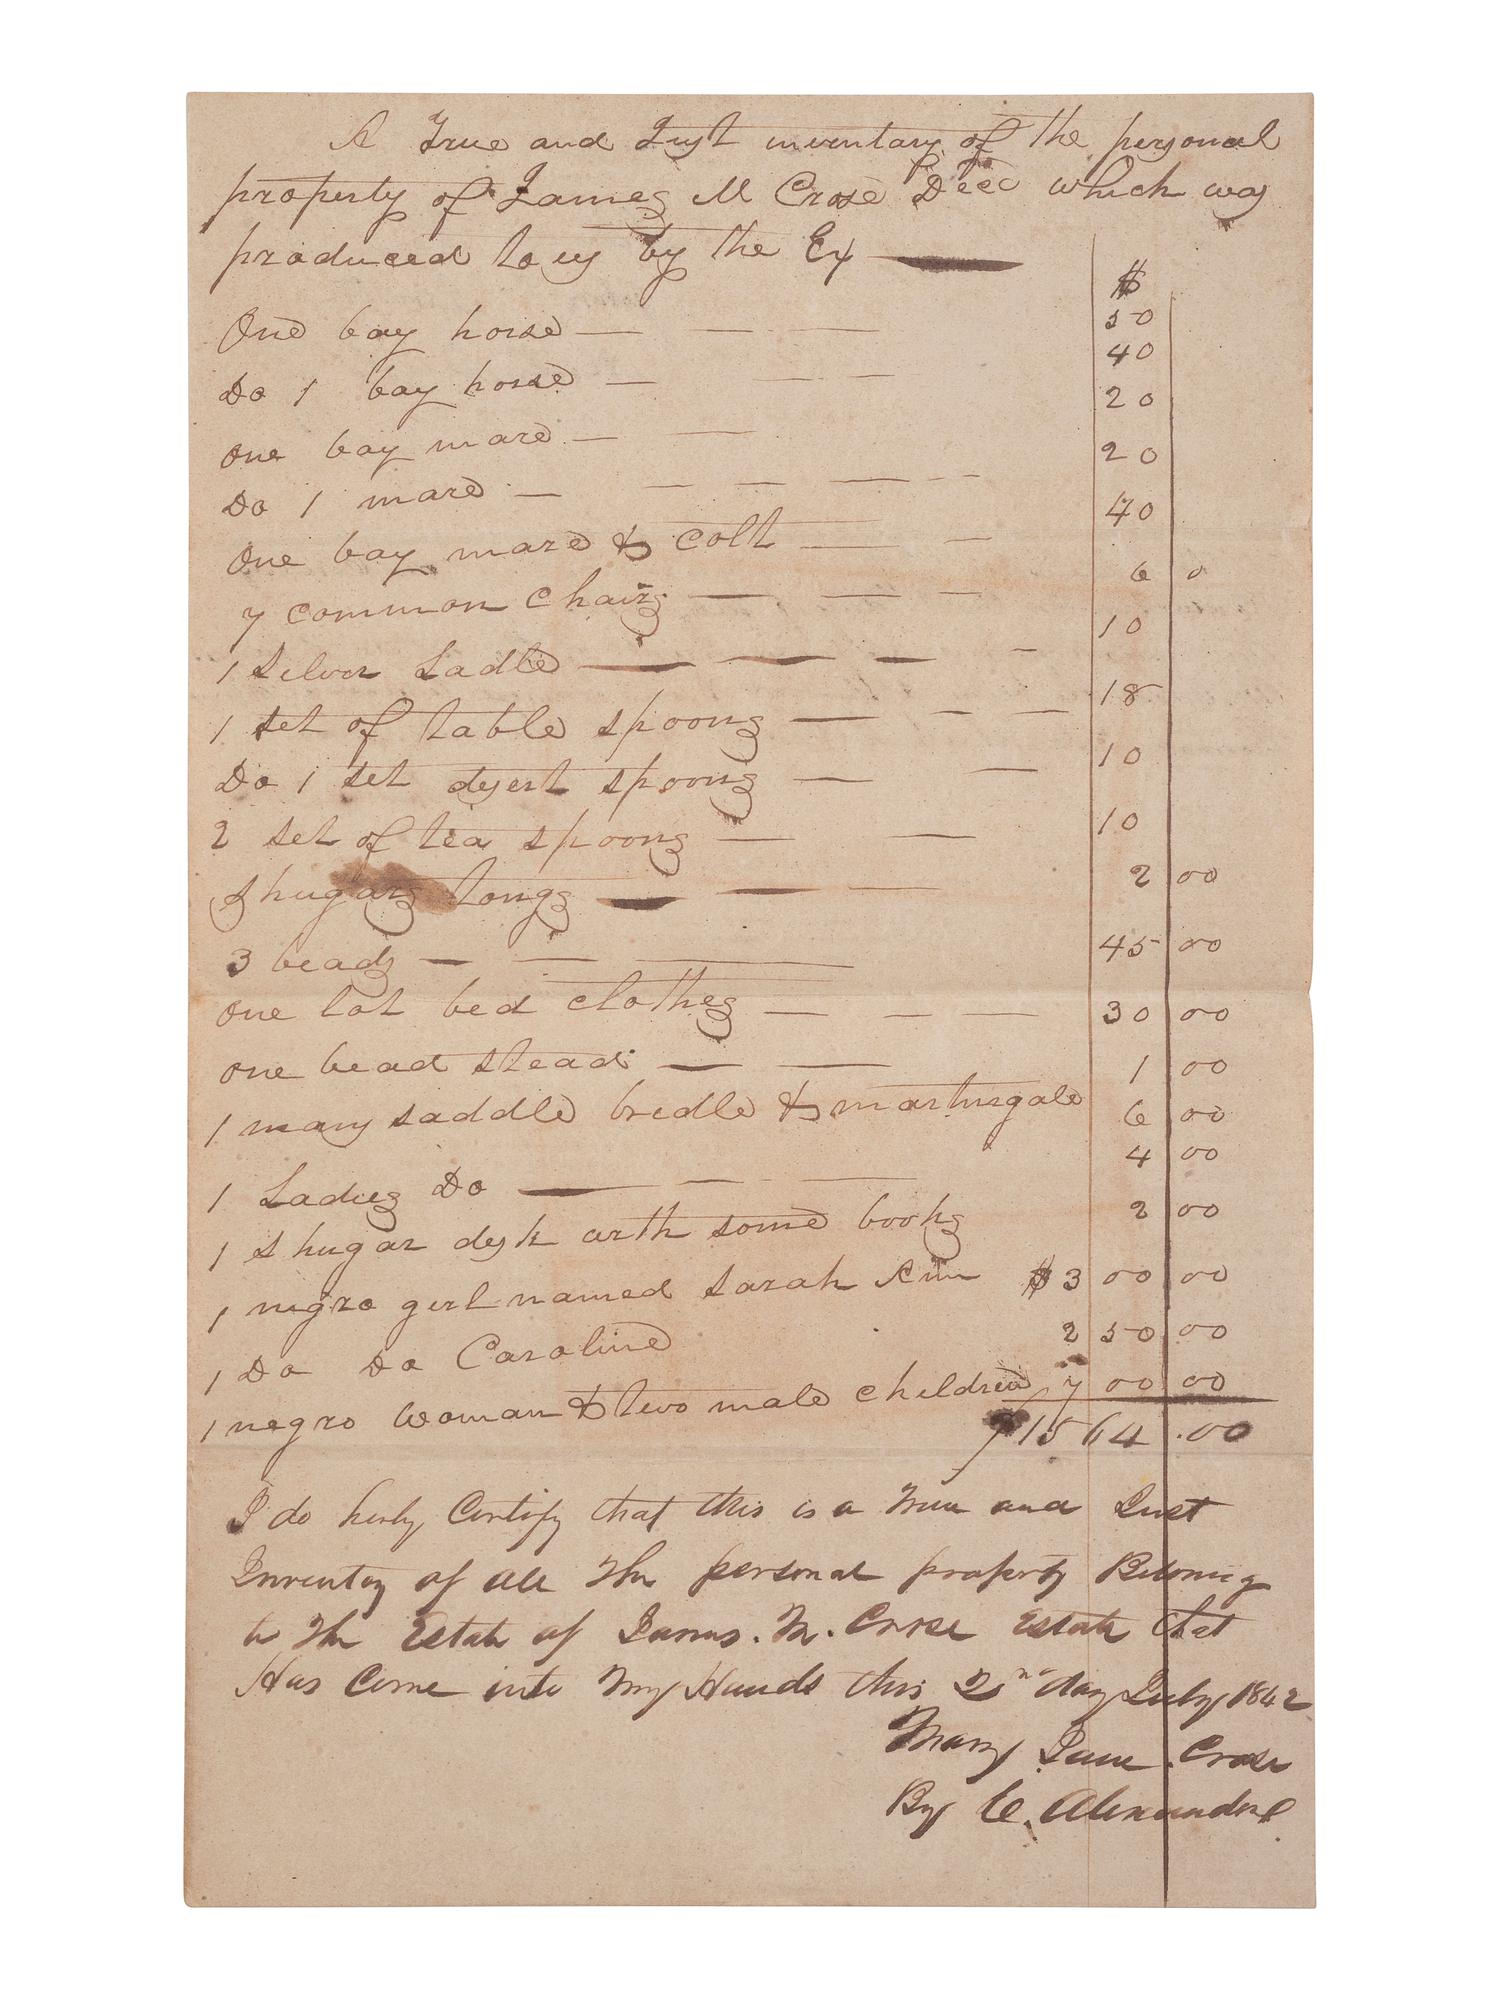 A True and Just inventary of the personal
property of James M Crose Decd which was
produced to us by the Ex
$
One bay horse 50
Do 1 bay horse 40
One bay mare 20
Do 1 mare 20
One bay mare & colt 40
7 common chairs 6 0
1 silver Ladle 10
1 set of table spoons 18
Do 1 set desert spoons 10
2 set of tea spoons 10
shugars tongs 2 00
3 beads 45 00
one lot bed clothes 30 00
one bead stead 1 00
1 mans saddle bredle & martingale 6 00
1 Ladies Do 4 00
1 shugar desk with some books 2 00
1 negro girl named Sarah Ann $300 00
1 Do Do Caroline 250 00
1 negro woman & two male children 700 00
$1564.00
I do herby Certify that this is a True and Just
Inventory of all the personal property Belonig
to the Estate of James. M. Crose Estate that
Has Come into My Hands this 2nd day July 1842
Mary Jane Crose
By C. Alexander